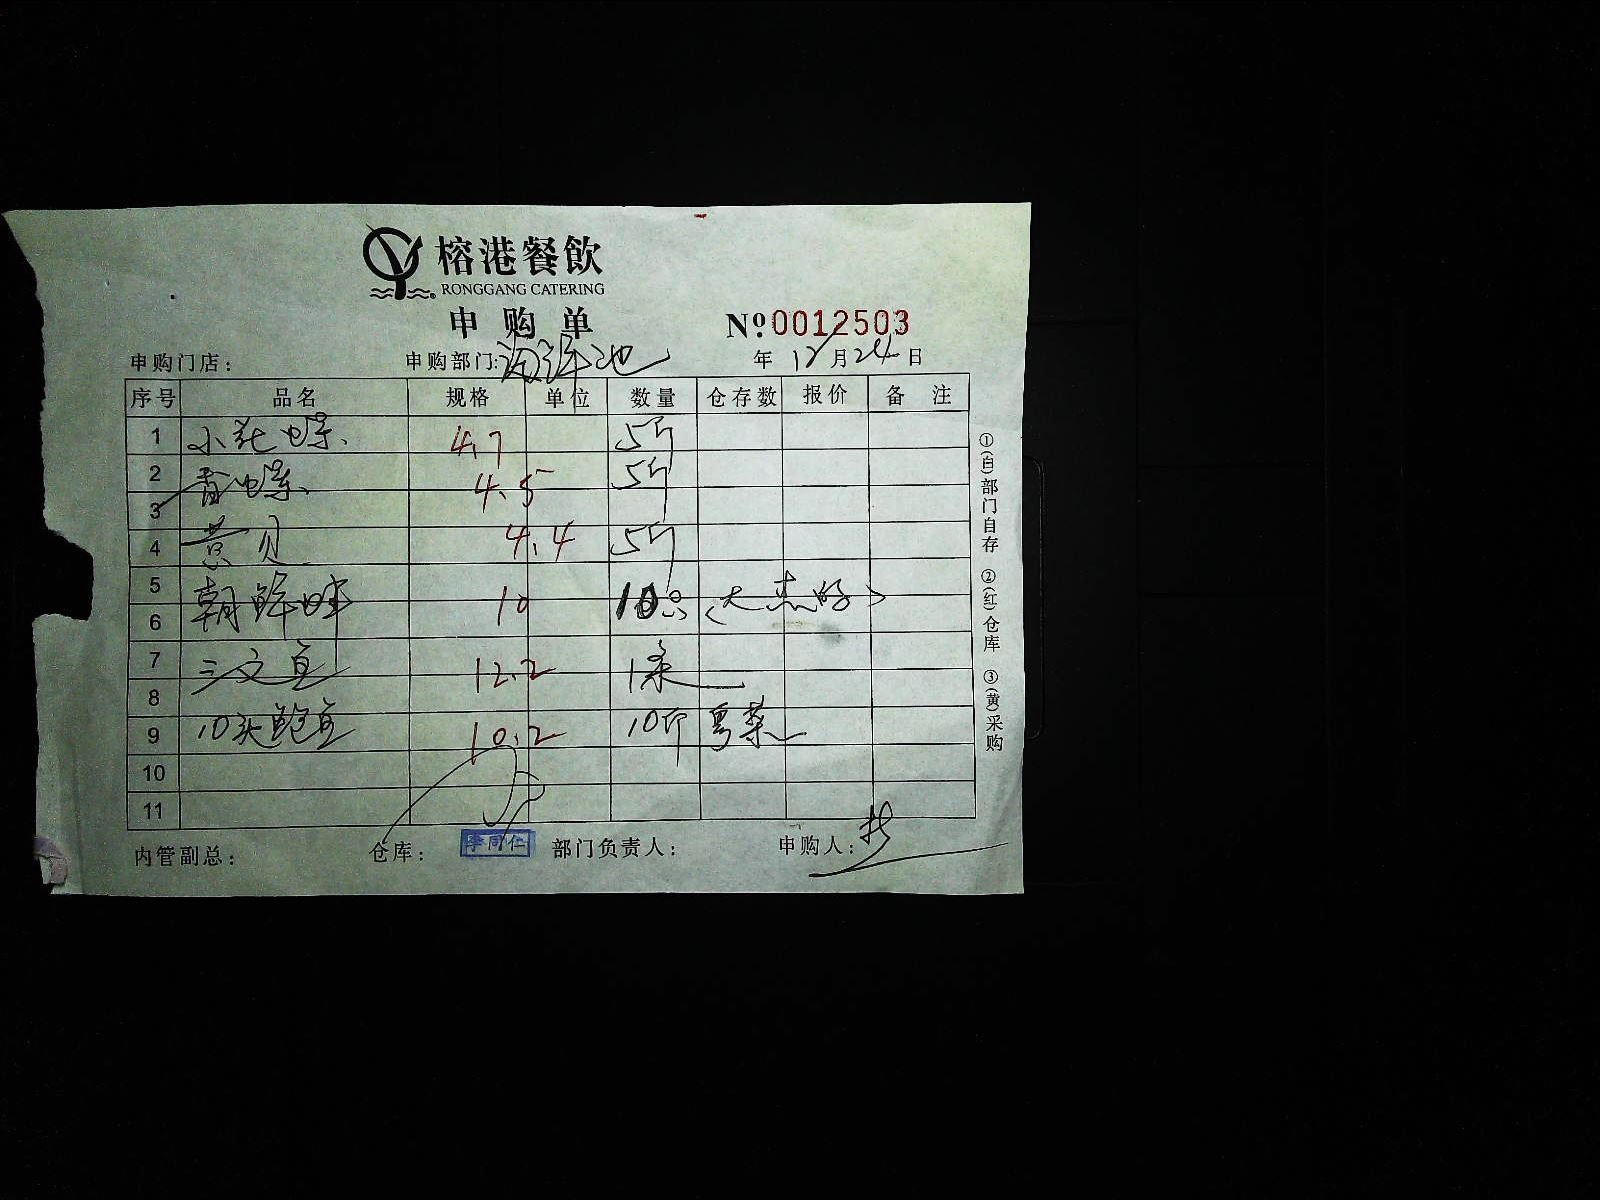 榕港餐飲
RONGGANG CATERING
申购单
Nº 0012503
申购门店： 申购部门：海鲜池 年 12 月 24 日
序号 品名 规格 单位 数量 仓存数 报价 备注
1 小花螺 4.7 5斤
2 青螺 4.5 5斤
3
4 黄贝 4.4 5斤
5 朝鲜蚌 10 10只（大 点的）
6
7 三文鱼 12.2 1条
8
9 10头鲍鱼 10.2 10斤 粤菜
10
11
内管副总： 仓库： 李同仁 部门负责人： 申购人：
①(白)部门自存 ②(红)仓库 ③(黄)采购